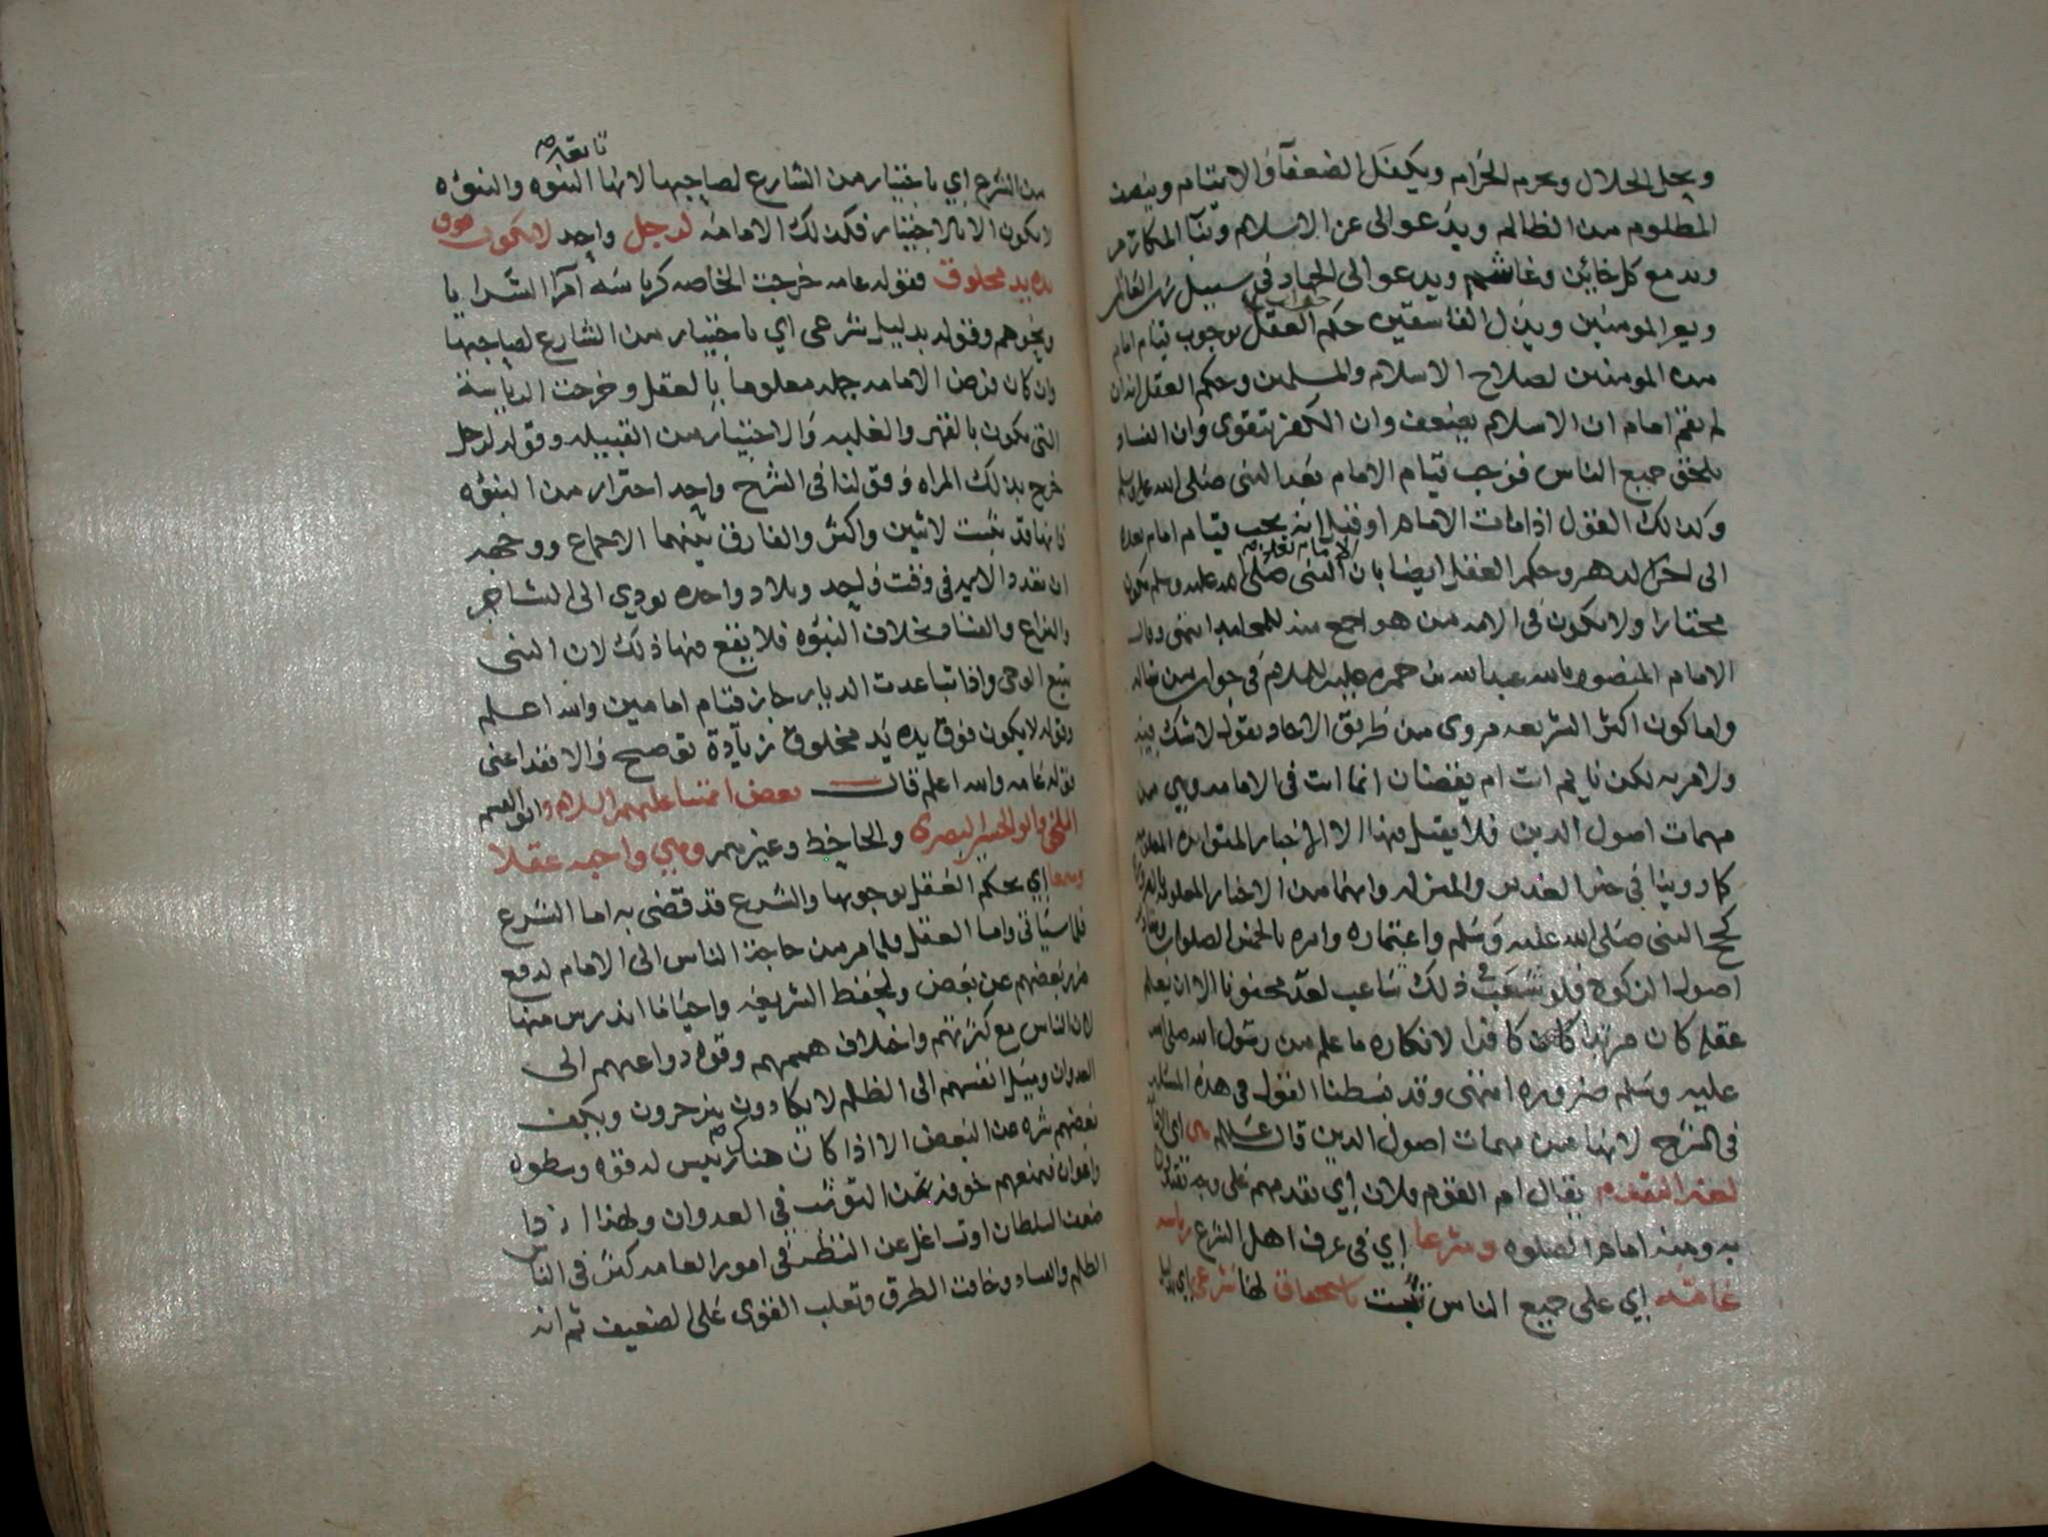 ويحل الحلال ويحرم الحرام ويكفل الضعفآ والايتام وينصف
المطلوم من الظالم ويدعو الى عز الاسلام وبنآ المكارم
وبدمع كل خاين وغاشم ويدعو الى الجهاد في سبيل رب العالمين
ويعز المومنين ويذل الفاسقين حكم العقل بوجوب قيام امام
من المومنين لصلاح الاسلام والمسلمين وحكم العقل انه ان
لم يقم امام ان الاسلام يضعف وان الكفر يتقوى وان الفساد
يلحق جميع الناس فوجب قيام الامام بعد النبي صلى الله عليه وسلم
وكذلك القول اذا مات الامام او قتل انه يجب قيام امام بعده
الى اخر الدهر وحكم العقل ايضا بان الامام بعد النبي صلى الله عليه وسلم يكون
مختارا ولا يكون في الامه من هو اجمع منه للمحامد انتهى وقال
الامام المنصور بالله عبدالله بن حمزه عليه السلام في جواب من قال
واما كون اكثر الشريعه مروي من طريق الاحاد بقوله لا شك فيه
ولا مريه لكن نا يهم ات ام يغضبان انما انت في الامامه وهي من
مهمات اصول الدين فلا يقبل فيها الا الاخبار المتواتره المعلومه
كما روينا في خبر الغدير والمنزله وانهما من الاخبار المعلومه
كحج النبي صلى الله عليه وسلم واعتماره وامره بالخمس الصلوات
اصول الزكوه فلو شغب في ذلك شاعب لعد مجنونا الا ان يعلم
عقله كان مرتدا كافرا لانكاره ما علم من رسول الله صلى الله
عليه وسلم ضروره انتهى وقد بسطنا القول في هذه المسله
في الشرح لانها من مهمات اصول الدين قال عليلم هي اي الامامه
لغه التقدم يقال ام القوم فلان اي تقدمهم على وجه يقتدون
به ومنه امام الصلوه وشرعا اي في عرف اهل الشرع رياسه
عامه اي على جميع الناس ثبت باستحقاق لها شرعي اي بدليل
من الشرع اي باختيار من الشارع لصاحبها لانها تابعه النبوه والنبوه
لا يكون الا بالاختيار فكذلك الامامه لرجل واحد لا يكون فوق
يده يد مخلوق فقوله عامه خرجت الخاصه كرياسه امرآ السرايا
ونحوهم وقوله بدليل شرعي اي باختيار من الشارع لصاحبها
وان كان فرض الامامه جمله معلوما بالعقل وخرجت الرياسه
التي يكون بالقهر والغلبه والاختيار من القبيله وقوله لرجل
خرج بذلك المراه وقولنا في الشرح واحد احتراز من النبوه
فانها قد ثبت لاثنين واكثر والفارق بينهما الاجماع ووجهه
ان تعدد الايمه في وقت واحد وبلاد واحده يودي الى التشاجر
والنزاع والفساد بخلاف النبوه فلا يقع فيها ذلك لان النبي
يتبع الوحي واذا تباعدت الديار جاز قيام امامين والله اعلم
وقوله لا يكون فوق يده يد مخلوق زيادة توضيح والا فقد اغنى
قوله عامه والله اعلم قال بعض ائمتنا عليهم السلام وابو القسم
البلخي وابو الحسين البصري والجاحظ وغيرهم وهي واجبه عقلا
وسمعا اي يحكم العقل بوجوبها والشرع قد قضى به اما الشرع
فلما سياتي واما العقل فلما مر من حاجة الناس الى الامام لدفع
ضرر بعضهم عن بعض ولحفظ الشريعه واحيآ ما اندرس منها
لان الناس مع كثرتهم واختلاف هممهم وقوه دواعيهم الى
العدوان وميل انفسهم الى الظلم لا يكادون ينزجرون ويكف
بعضهم شره عن البعض الا اذا كان هناك رئيس له قوه وسطوه
واعوان فيمنعهم خوفه عن التوثب في العدوان ولهذا اذا ما
ضعف السلطان او تشاغل عن النظر في امور العامه كثر في الناس
الظلم والفساد وخافت الطرق وتغلب القوى على الضعيف ثم انه